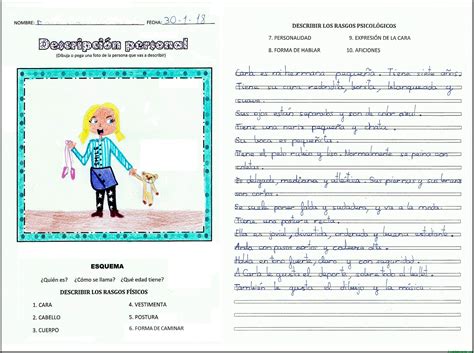 NOMBRE: FECHA: 30-1-18
Descripción personal
(Dibuja o pega una foto de la persona que vas a describir)
ESQUEMA
¿Quién es? ¿Cómo se llama? ¿Qué edad tiene?
DESCRIBIR LOS RASGOS FÍSICOS
1. CARA 4. VESTIMENTA
2. CABELLO 5. POSTURA
3. CUERPO 6. FORMA DE CAMINAR
DESCRIBIR LOS RASGOS PSICOLÓGICOS
7. PERSONALIDAD 9. EXPRESIÓN DE LA CARA
8. FORMA DE HABLAR 10. AFICIONES
Carla es mi hermana pequeña. Tiene siete años.
Tiene su cara redondita, bonita, blanqueada y
suave.
Sus ojos están separados y son de color azul.
Tiene una nariz pequeña y chata.
Su boca es pequeñita.
Tiene el pelo rubio y liso. Normalmente se peina con
coletas.
Es delgada, mediana y atlética. Sus piernas y sus brazos
son cortos.
Se suele poner falda y sudadera, y va a la moda.
Tiene una postura recta.
Ella es jovial, divertida, ordenada y buena estudiante.
Anda con pasos cortos y
Habla entre fuerte, claro y con seguridad.
A Carla le gusta el deporte, sobre todo el ballet.
También le gusta el dibujo y la música.